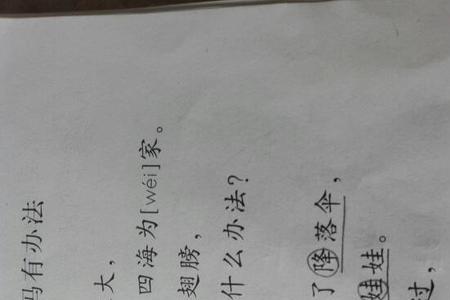 妈有办法
大，
四海为[wéi]家。
翅膀，
什么办法？
了降落伞，
娃娃。
过，